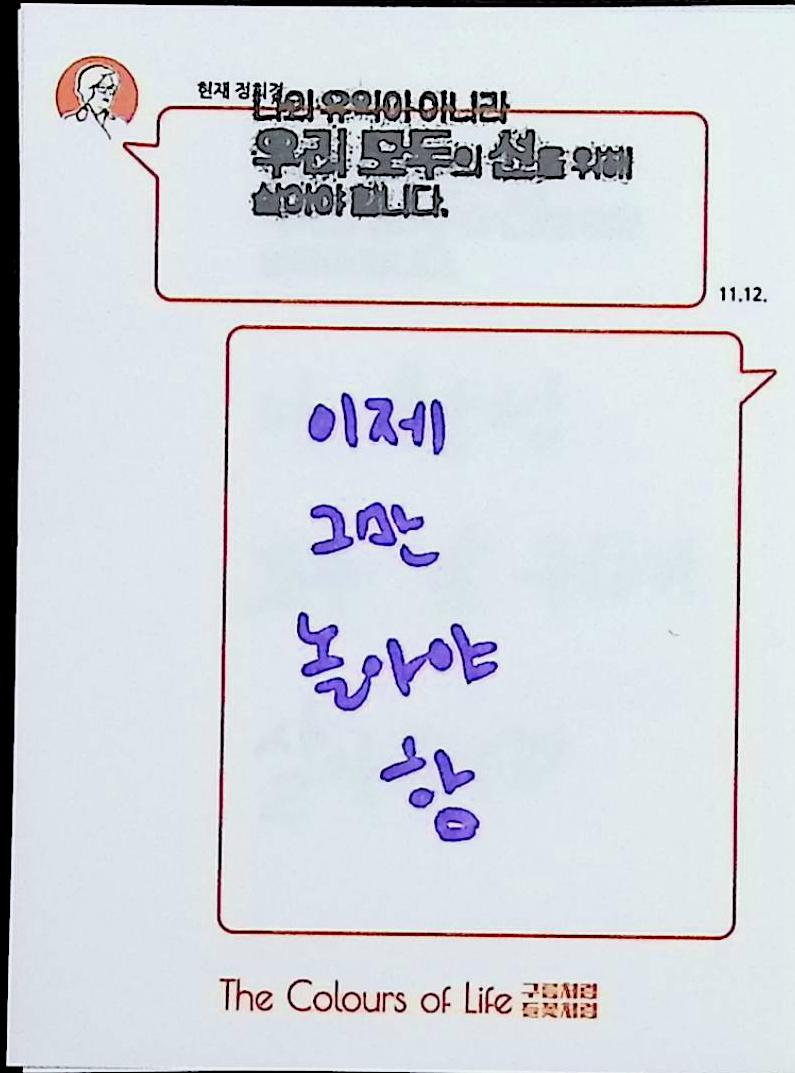 현재 정희경
나의 유익이 아니라
우리 모두의 선을 위해
살아야 합니다.
11.12.
이제
그만
놀아야
항
The Colours of Life 구름처럼
들꽃처럼